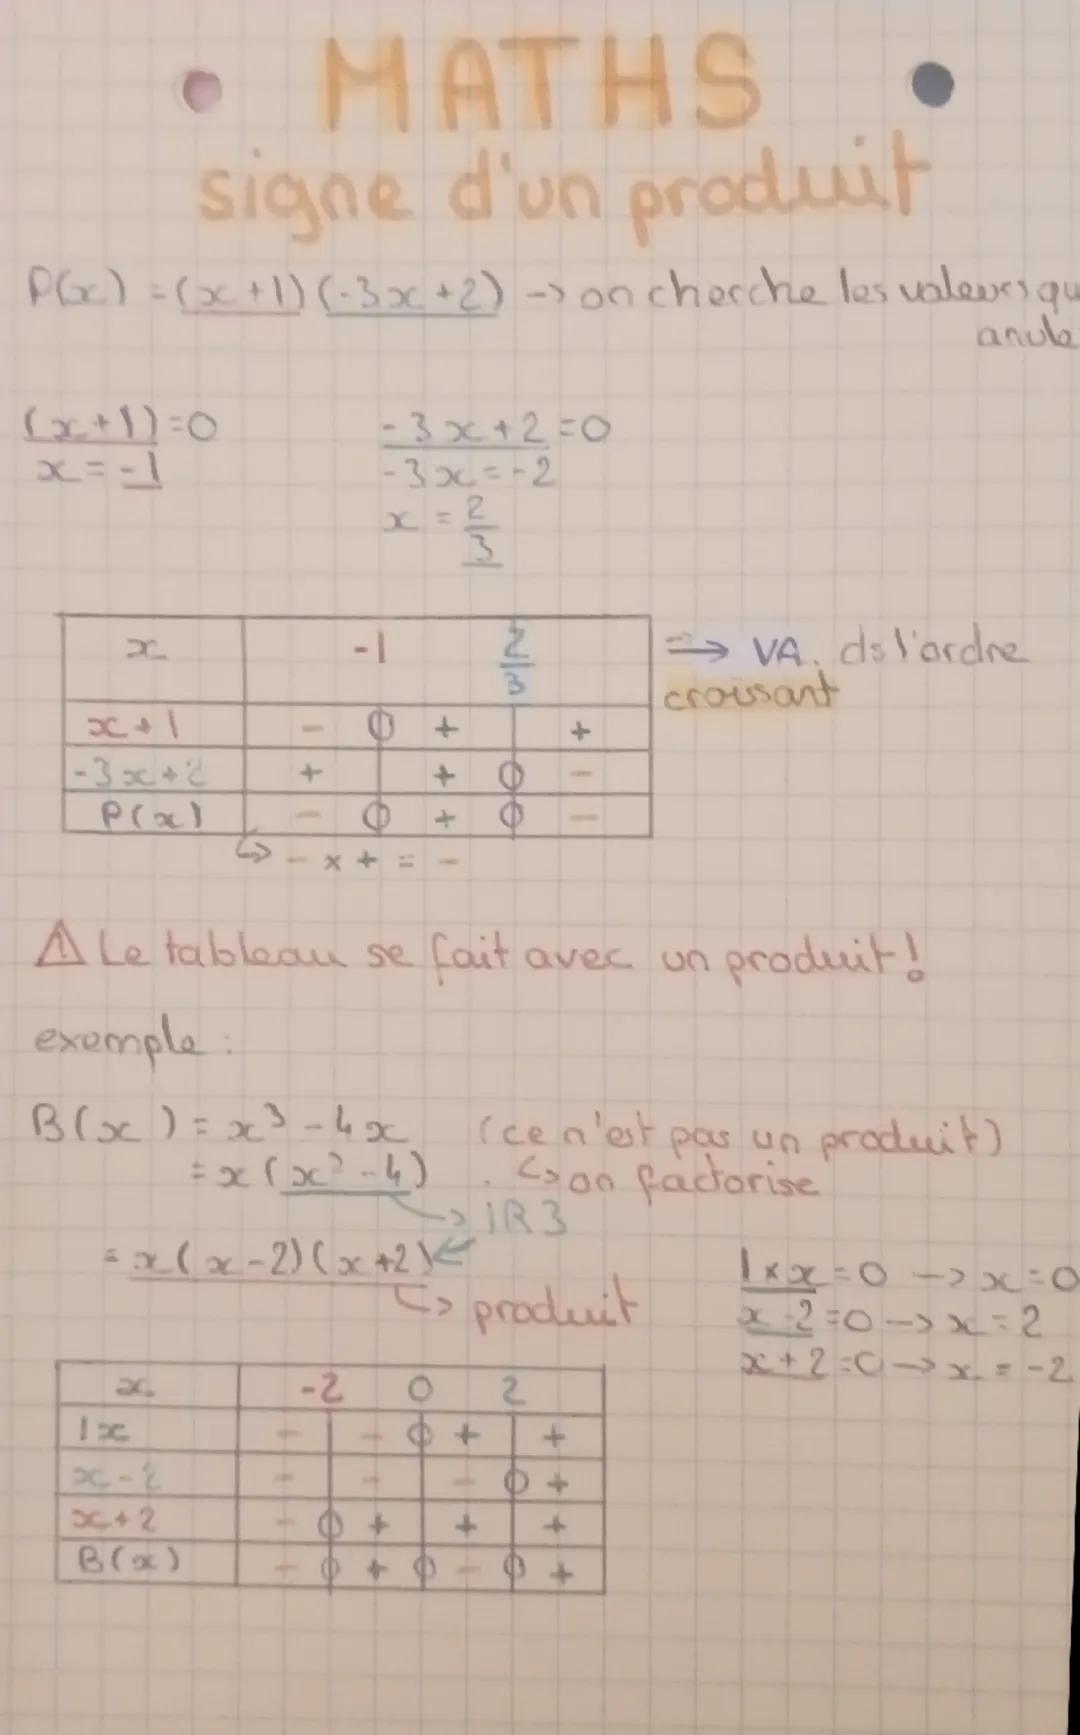 MATHS
signe d'un produit
P(x) = (x+1)(-3x+2) -> on cherche les valeurs qu
anule
(x+1)=0
x = -1
-3x+2=0
-3x=-2
x = 2/3
x -1 2/3
=> VA. ds l'ordre
croissant
x+1 - 0 + +
-3x+2 + + 0 -
P(x) - 0 + 0 -
↳ - x + = -
⚠ Le tableau se fait avec un produit!
exemple :
B(x) = x³ - 4x (ce n'est pas un produit)
= x(x² - 4) ↳ on factorise
-> IR3
= x(x-2)(x+2)
↳ produit
1×x=0 -> x=0
x-2=0 -> x=2
x+2=0 -> x=-2
x -2 0 2
1x - - 0 + +
x-2 - - - 0 +
x+2 - 0 + + +
B(x) - 0 + 0 - 0 +